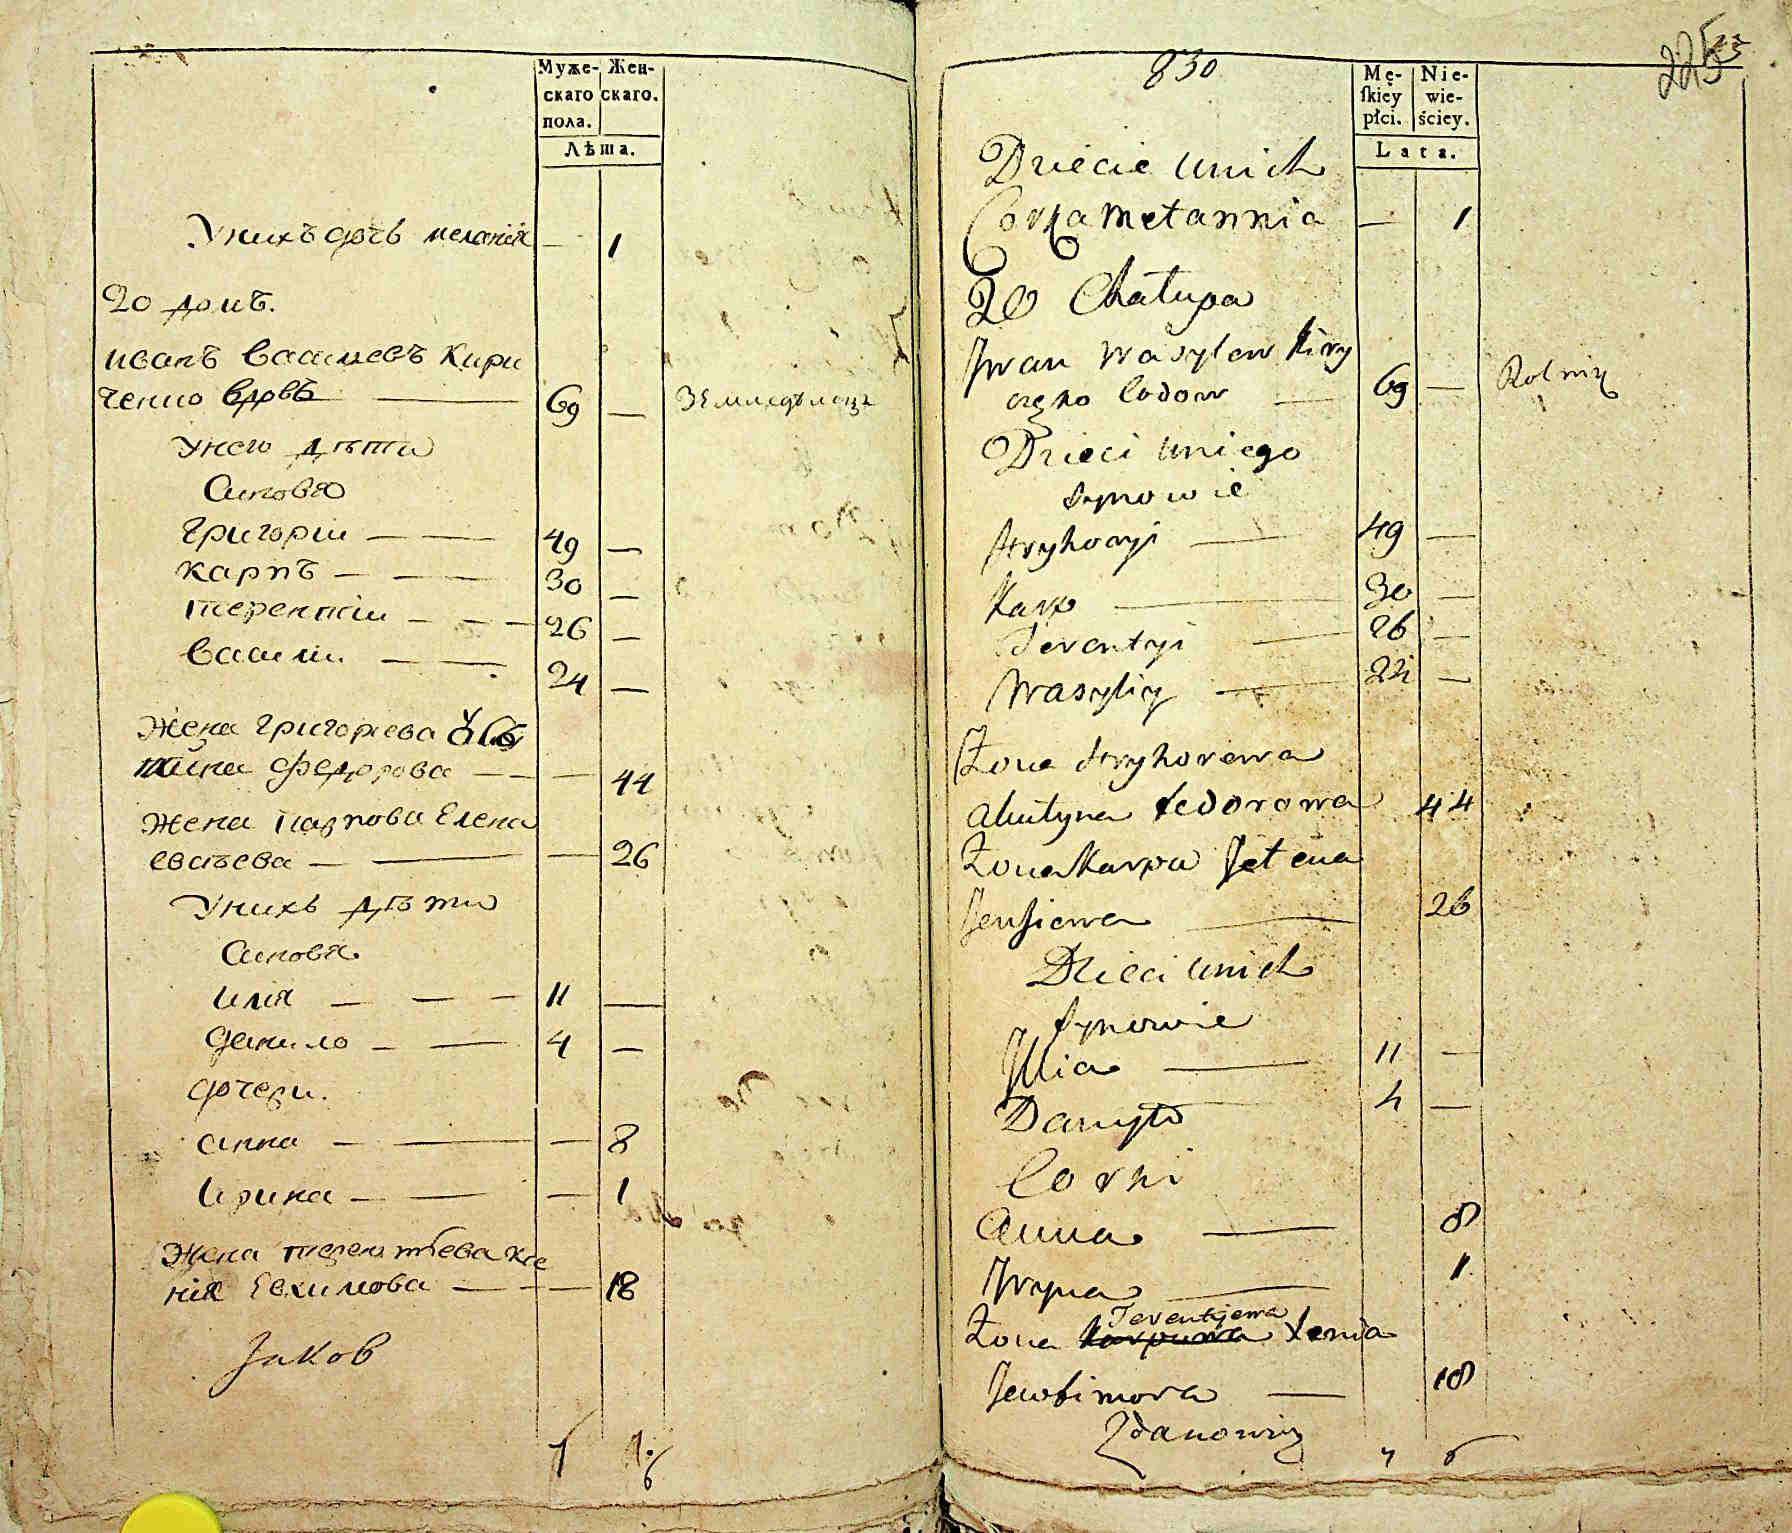 Муже-
скаго
пола.
Жен-
скаго.
Лѣта.
Унихъ дочь меланія — 1
20 домъ.
иванъ васильевъ Кири
ченко вдовъ — 69 — земледѣлецъ
Унего дѣти
Синовя
Григоріи — 49 —
карпъ — 30 —
терентіи — 26 —
васили — 24 —
Жена григориева Ѹс
тина федорова — 44
Жена карпова Елена
евсѣева — 26
Унихъ дѣти
Синовя
илія — 11 —
данило — 4 —
дочери.
анна — 8
ирина — 1
Жена терентѣева ксе
нія Евхимова — 18
Jаков
7 6
830
225
Mę-
ſkiey
płci.
Nie-
wie-
ściey.
Lata.
Dziecie unich
Corka Metannia — 1
20 Chatupa
Jwan Wasylew Kiry
częko Codow — 69 — Rolnik
Dzieci uniego
Synowie
Hryhoryi — 49 —
Karp — 30 —
Terentyi — 26 —
Wasyliy — 24 —
Żona Hryhorewa
Austyna Fedorowa 44
Żona Karpa Jelena
Jewsiewa — 26
Dzieci unich
Synowie
Jllia — 11 —
Danyło — 4 —
Corki
Anna — 8
Jryna — 1
Żona Karpowa Terentjewa Xenia
Jewfimowa — 18
Zdanowicz
7 6